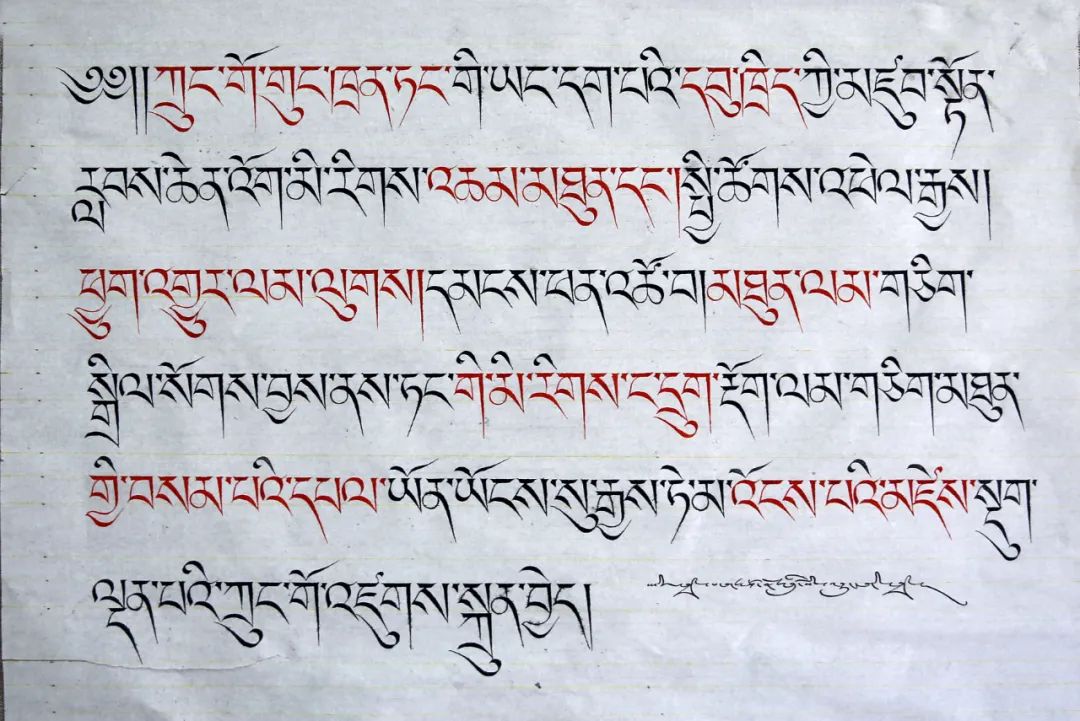 ༄༅།། ཀྲུང་གོ་གུང་ཁྲན་ཏང་གི་ཡང་དག་པའི་དབུ་ཁྲིད་ཀྱི་མཛུབ་སྟོན་
རླབས་ཆེན་འོག་མི་རིགས་འཆམ་མཐུན་དང་།སྤྱི་ཚོགས་འཕེལ་རྒྱས།
ཕྱུག་འགྱུར་ལམ་ལུགས།དམངས་ཕན་འཚོ་བ།མཐུན་ལམ་གཅིག་
སྒྲིལ་སོགས་བྱས་ནས་ཏང་གི་མི་རིགས་ང་དྲུག་རྡོག་ལམ་གཅིག་མཐུན་
གྱི་བསམ་པའི་དཔལ་ཡོན་ཡོངས་སུ་རྒྱས་ཏེ་མ་འོངས་པའི་མཛེས་སྡུག་
ལྡན་པའི་ཀྲུང་གོ་འཛུགས་སྐྲུན་བྱེད།